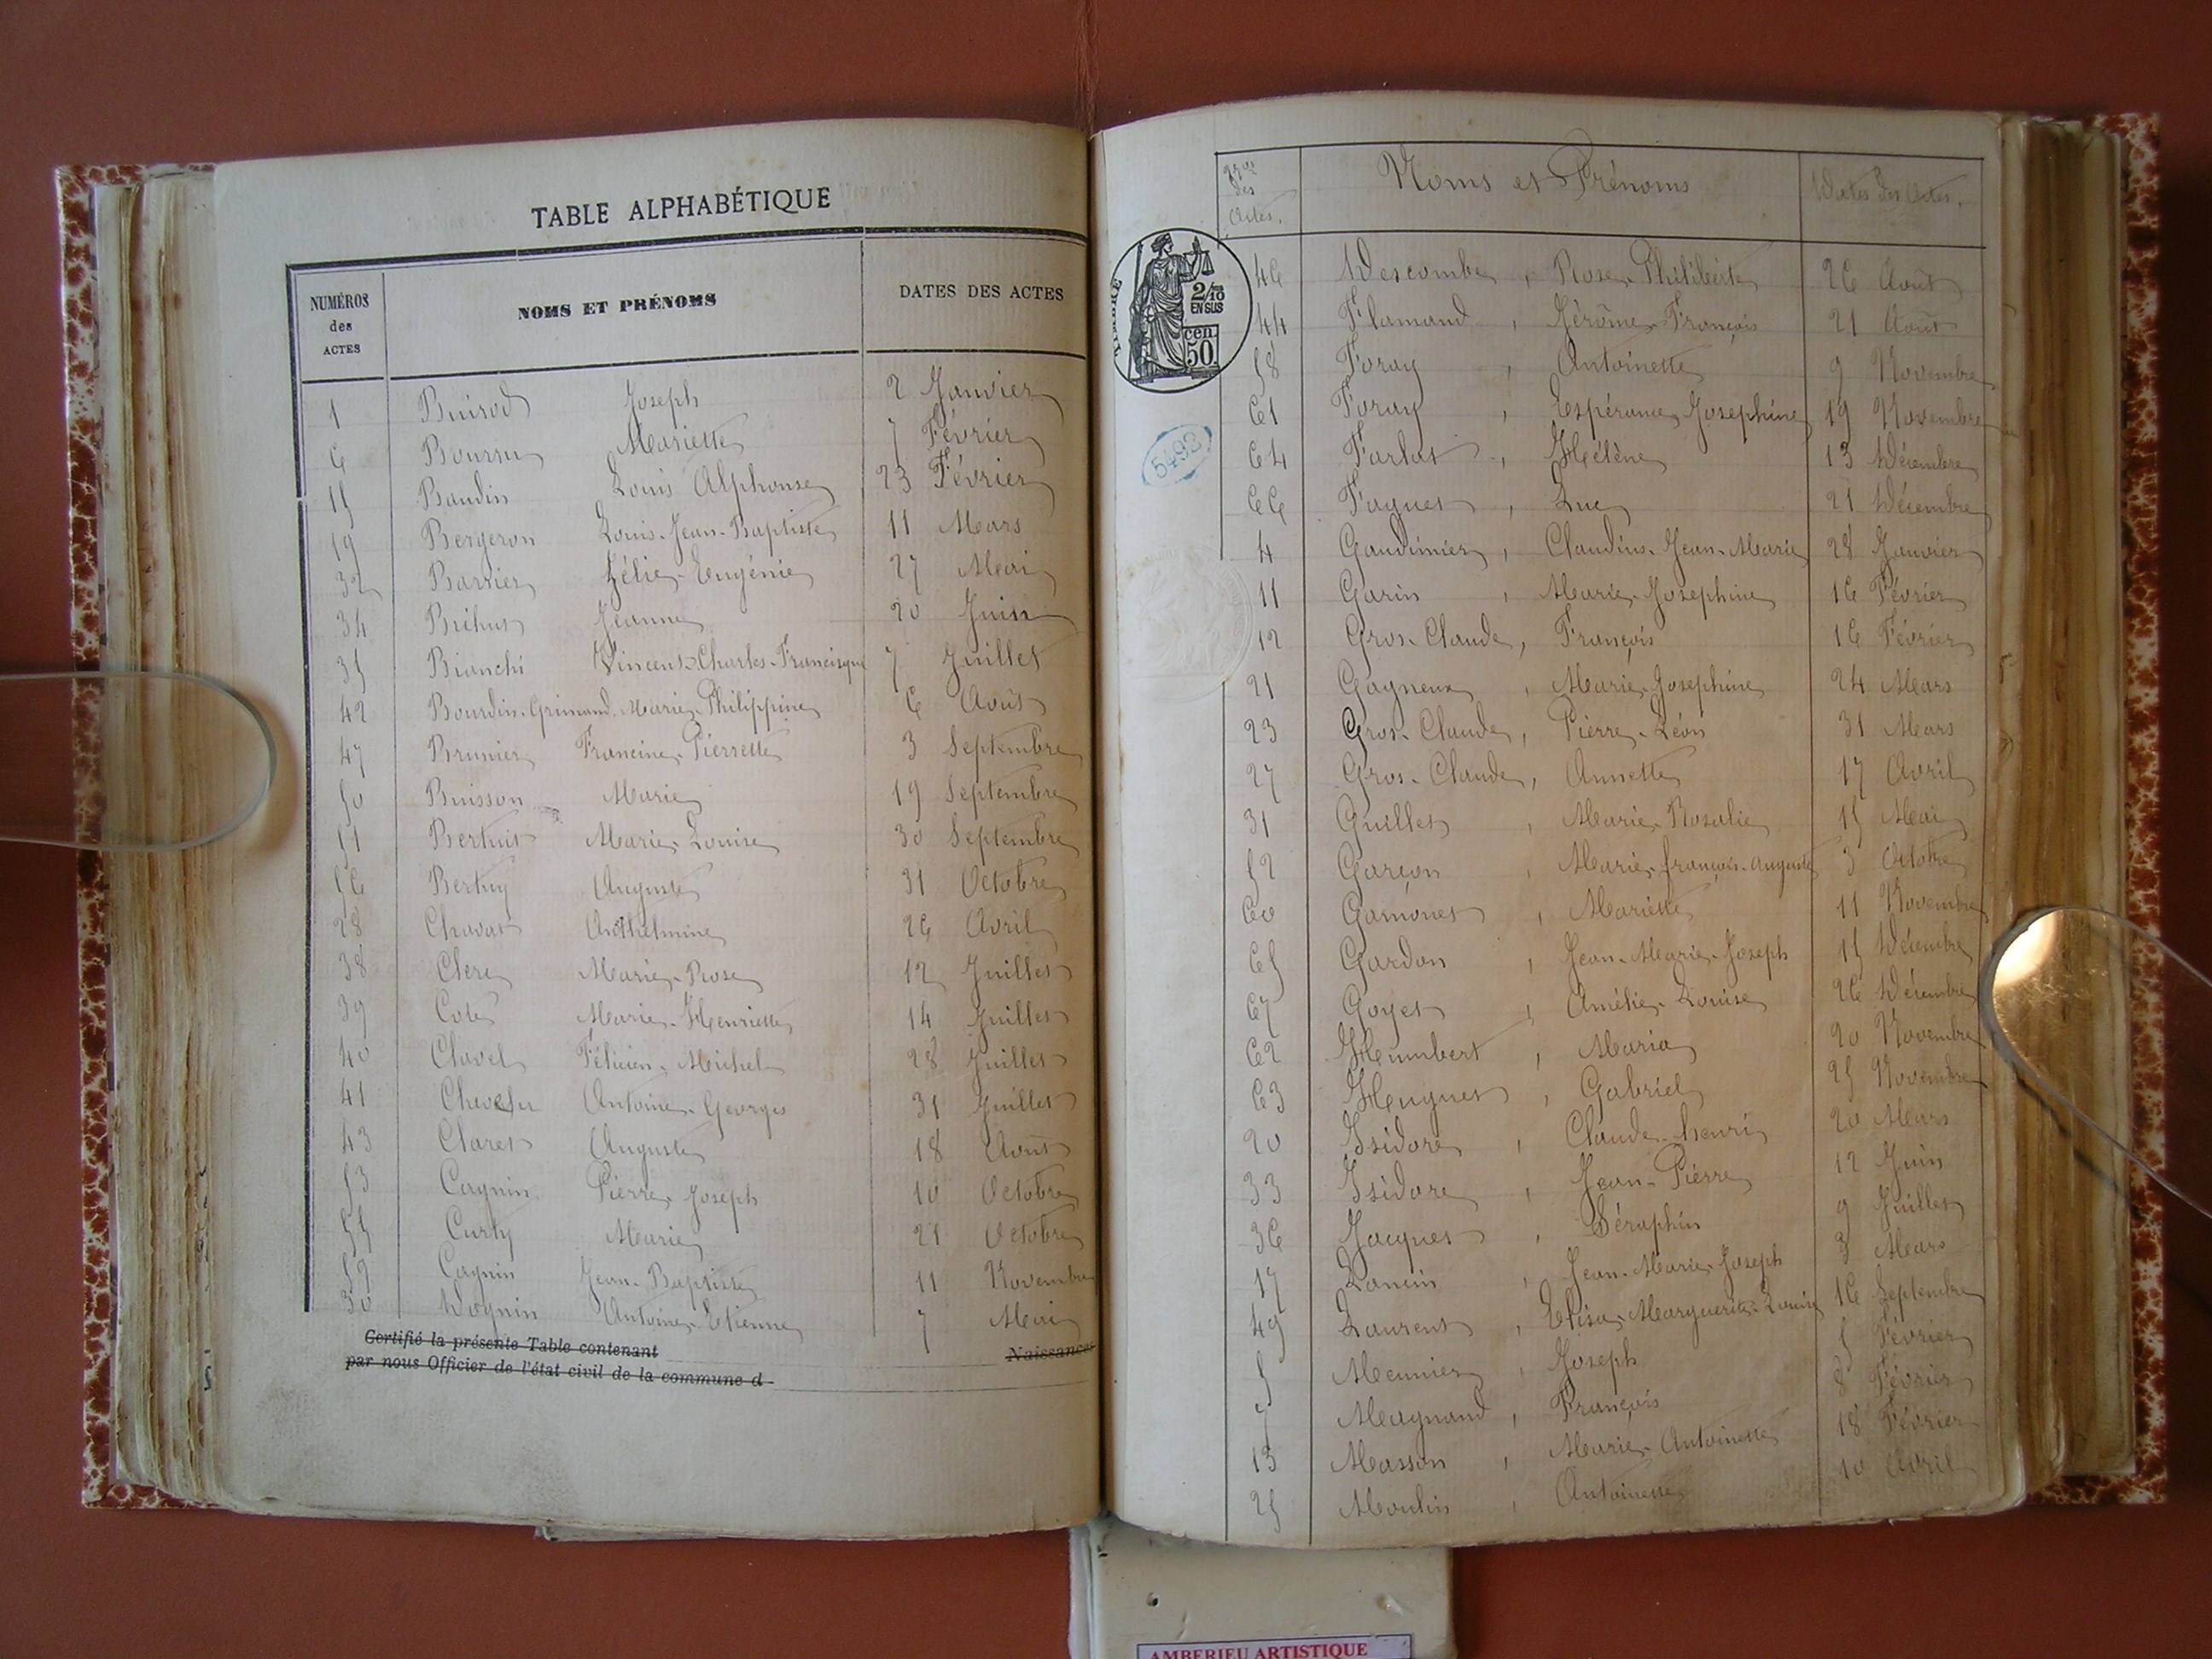 TABLE ALPHABÉTIQUE
NUMÉROS des ACTES NOMS ET PRÉNOMS DATES DES ACTES
1 Buirod Joseph 2 Janvier
6 Bourru Mariette 7 Février
15 Baudin Louis Alphonse 23 Février
19 Bergeron Louis-Jean-Baptiste 11 Mars
32 Barrier Zélie-Eugénie 27 Mai
34 Jeanne 20 Juin
35 Bianchi Vincent-Charles-Francisque 7 Juillet
42 Bourdin-Grimaud Marie-Philippine 6 Août
47 Brunier Francine-Pierrette 3 Septembre
50 Buisson Marie 19 Septembre
51 Berthet Marie-Louise 30 Septembre
56 Berthy Auguste 31 Octobre
28 Chavat Anthelmine 26 Avril
38 Clerc Marie-Rose 12 Juillet
39 Cote Marie-Henriette 14 Juillet
40 Clavel Félicien-Michel 28 Juillet
41 Antoine-Georges 31 Juillet
43 Claret Auguste 18 Août
53 Cagnin Pierre-Joseph 10 Octobre
55 Curty Marie 21 Octobre
59 Cagnin Jean-Baptiste 11 Novembre
30 Dognin Antoine-Etienne 7 Mai
Certifié la présente Table contenant Naissances
par nous Officier de l'état civil de la commune d
Nos des Actes. Noms et Prénoms Dates des Actes.
TIMBRE
2/10
EN SUS
50 cen
5492
46 Descombe, Rose-Philiberte 26 Août
44 Flamand, Jérôme-François 21 Août
58 Foray, Antoinette 9 Novembre
61 Foray, Espérance-Josephine 19 Novembre
64 Farlat, Hélène 13 Décembre
66 Faguet, Luc 21 Décembre
4 Gaudinier, Claudius-Jean-Marie 28 Janvier
11 Garin, Marie-Josephine 16 Février
12 Gros-Claude, François 16 Février
21 Gagneux, Marie-Josephine 24 Mars
23 Gros-Claude, Pierre-Léon 31 Mars
27 Gros-Claude, Annette 17 Avril
31 Guillet, Marie-Rosalie 15 Mai
52 Garçon, Marie-françois-auguste 3 Octobre
60 Gamonet, Mariette 11 Novembre
65 Gardon, Jean-Marie-Joseph 15 Décembre
67 Goyet, Amélie-Louise 26 Décembre
62 Humbert, Maria 20 Novembre
63 Huguet, Gabriel 25 Novembre
20 Isidore, Claude-henri 20 Mars
33 Isidore, Jean-Pierre 12 Juin
36 Jacquet, Séraphin 9 Juillet
17 Lancin, Jean-Marie-Joseph 3 Mars
49 Laurent, Elisa-Marguerite-Louise 16 Septembre
5 Meunier, Joseph 5 Février
7 Magnand, François 8 Février
13 Masson, Marie-Antoinette 18 Février
25 Moulin, Antoinette 10 Avril
AMBERIEU ARTISTIQUE